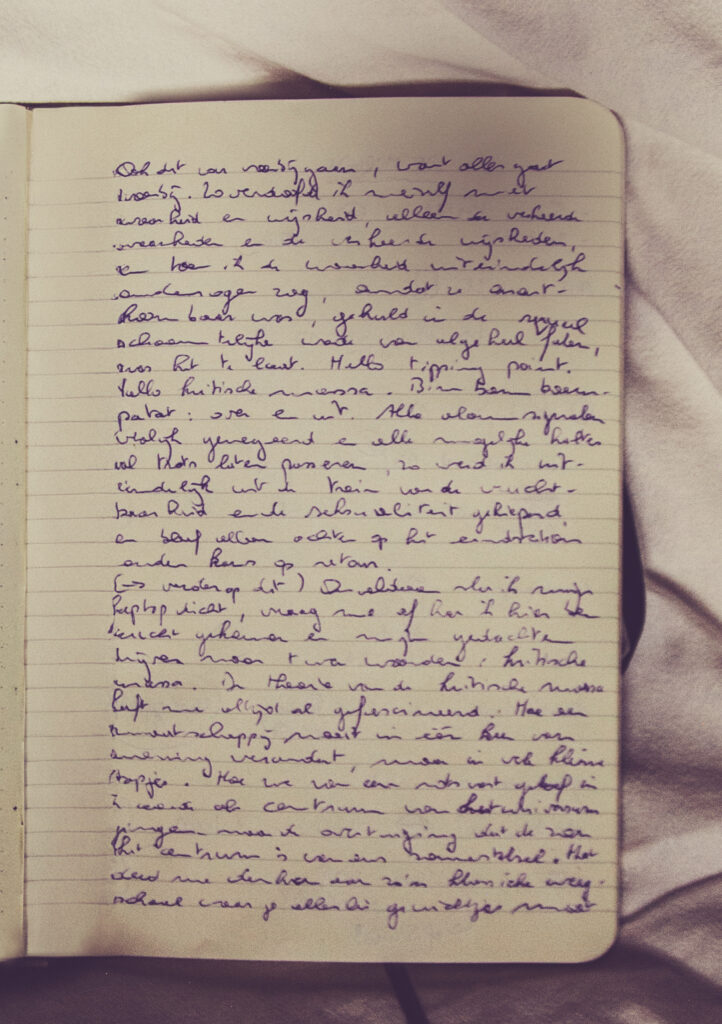 Ook dit zou voorbijgaan, want alles gaat
voorbij. Zo verdoofd ik mezelf met
waarheid en wijsheid, alleen de verkeerde
waarheden en de verkeerde wijsheden,
en toen ik de waarheid uiteindelijk
onder ogen zag, omdat ze onont-
koombaar was, gehuld in de
schaamtelijke wade van algeheel falen,
was het te laat. Hello tipping point.
Hello kritische massa. Bim bam boem-
patat: over en uit. Alle alarmsignalen
vrolijk genegeerd en alle mogelijke haltes
al trots laten passeren, zo werd ik uit-
eindelijk uit de trein van de vrucht-
baarheid en de seksualiteit gekieperd
en bleef alleen achter op het eindstation
zonder kans op retour.
(→ verder op dit) sla ik mijn
laptop dicht, vraag me af hoe ik hier ben
terecht gekomen en mijn gedachten
blijven naar twee woorden: kritische
massa. De theorie van de kritische massa
heeft me altijd al gefascineerd. Hoe een
maatschappij nooit in één keer van
mening verandert, maar in vele kleine
stapjes. Hoe we van een rotsvast geloof in
de aarde als centrum van het universum
gingen naar de overtuiging dat de zon
het centrum is van ons zonnestelsel. Het
deed me denken aan zo'n klassieke weeg-
schaal waar je allerlei gewichtjes moet